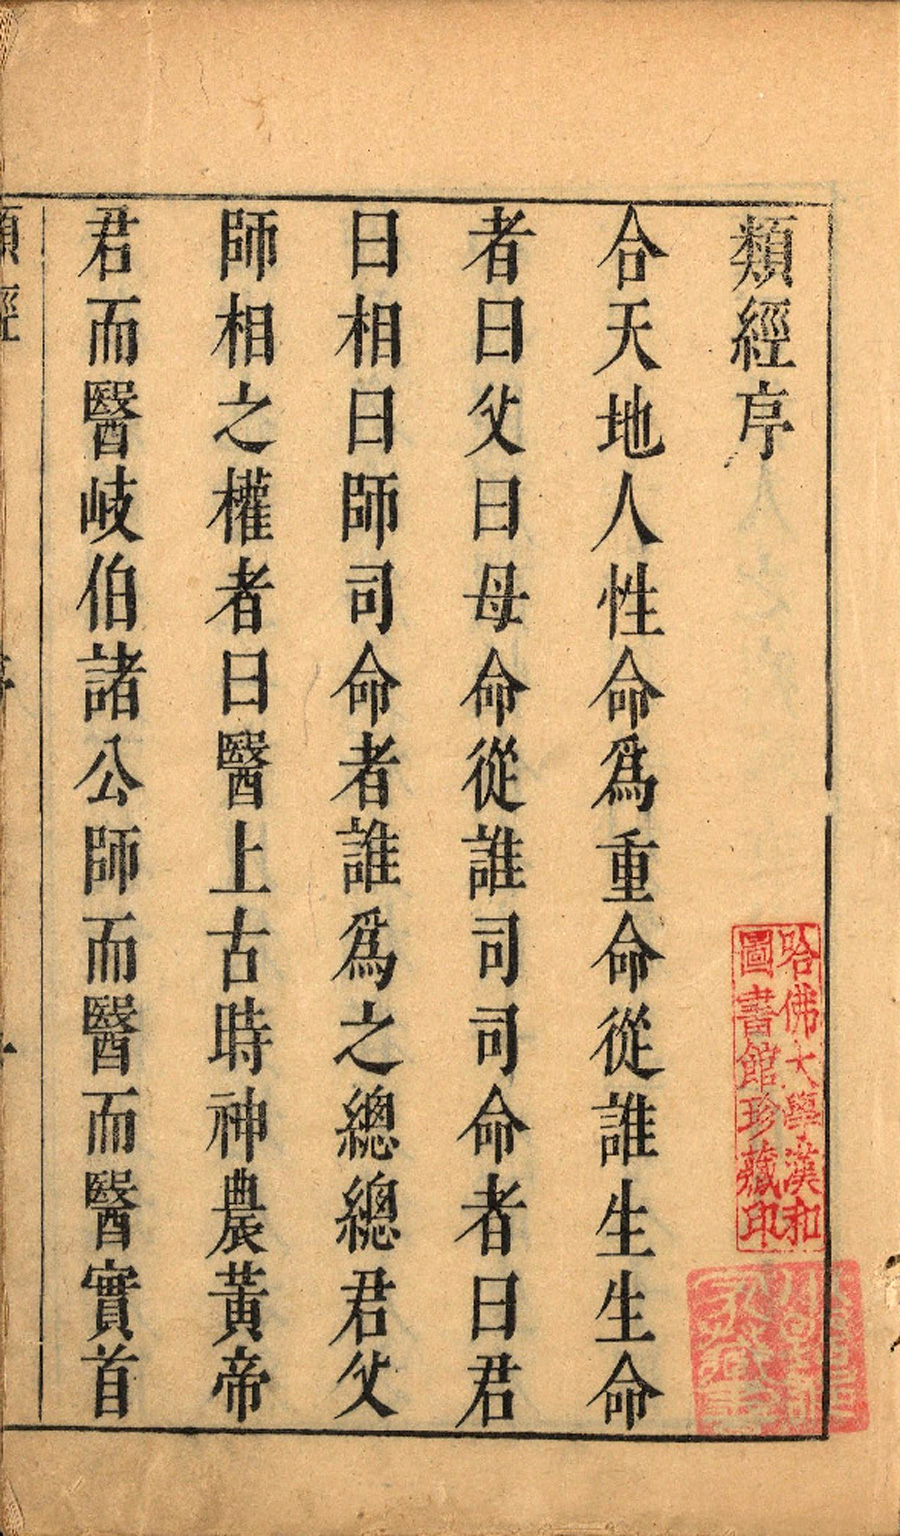 類經序
合天地人性命爲重命從誰生生命
者曰父曰母命從誰司司命者曰君
曰相曰師司命者誰爲之總總君父
師相之權者曰醫上古時神農黃帝
君而醫岐伯諸公師而醫而醫實首
哈佛大學漢和
圖書館珍藏印
類經